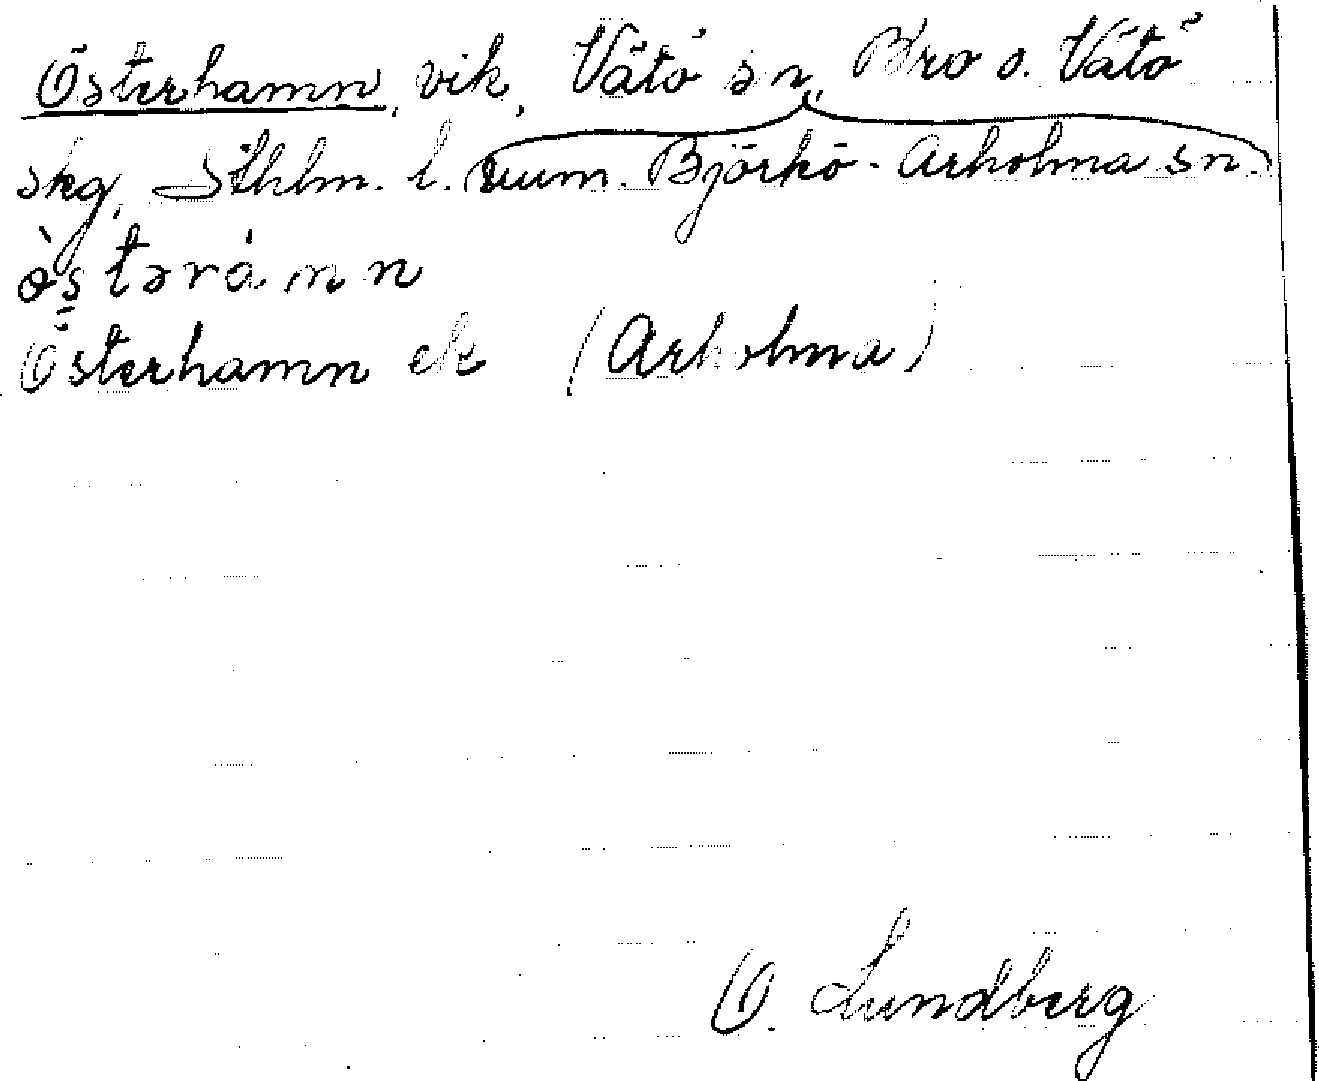 Österhamn, vik, Vätö sn, Bro o. Vätö
skg, Sthlm. l. (num. Björkö-Arholma sn.)
ò̀s̱tərámn
Österhamn ek (Arholma)
O. Lundberg